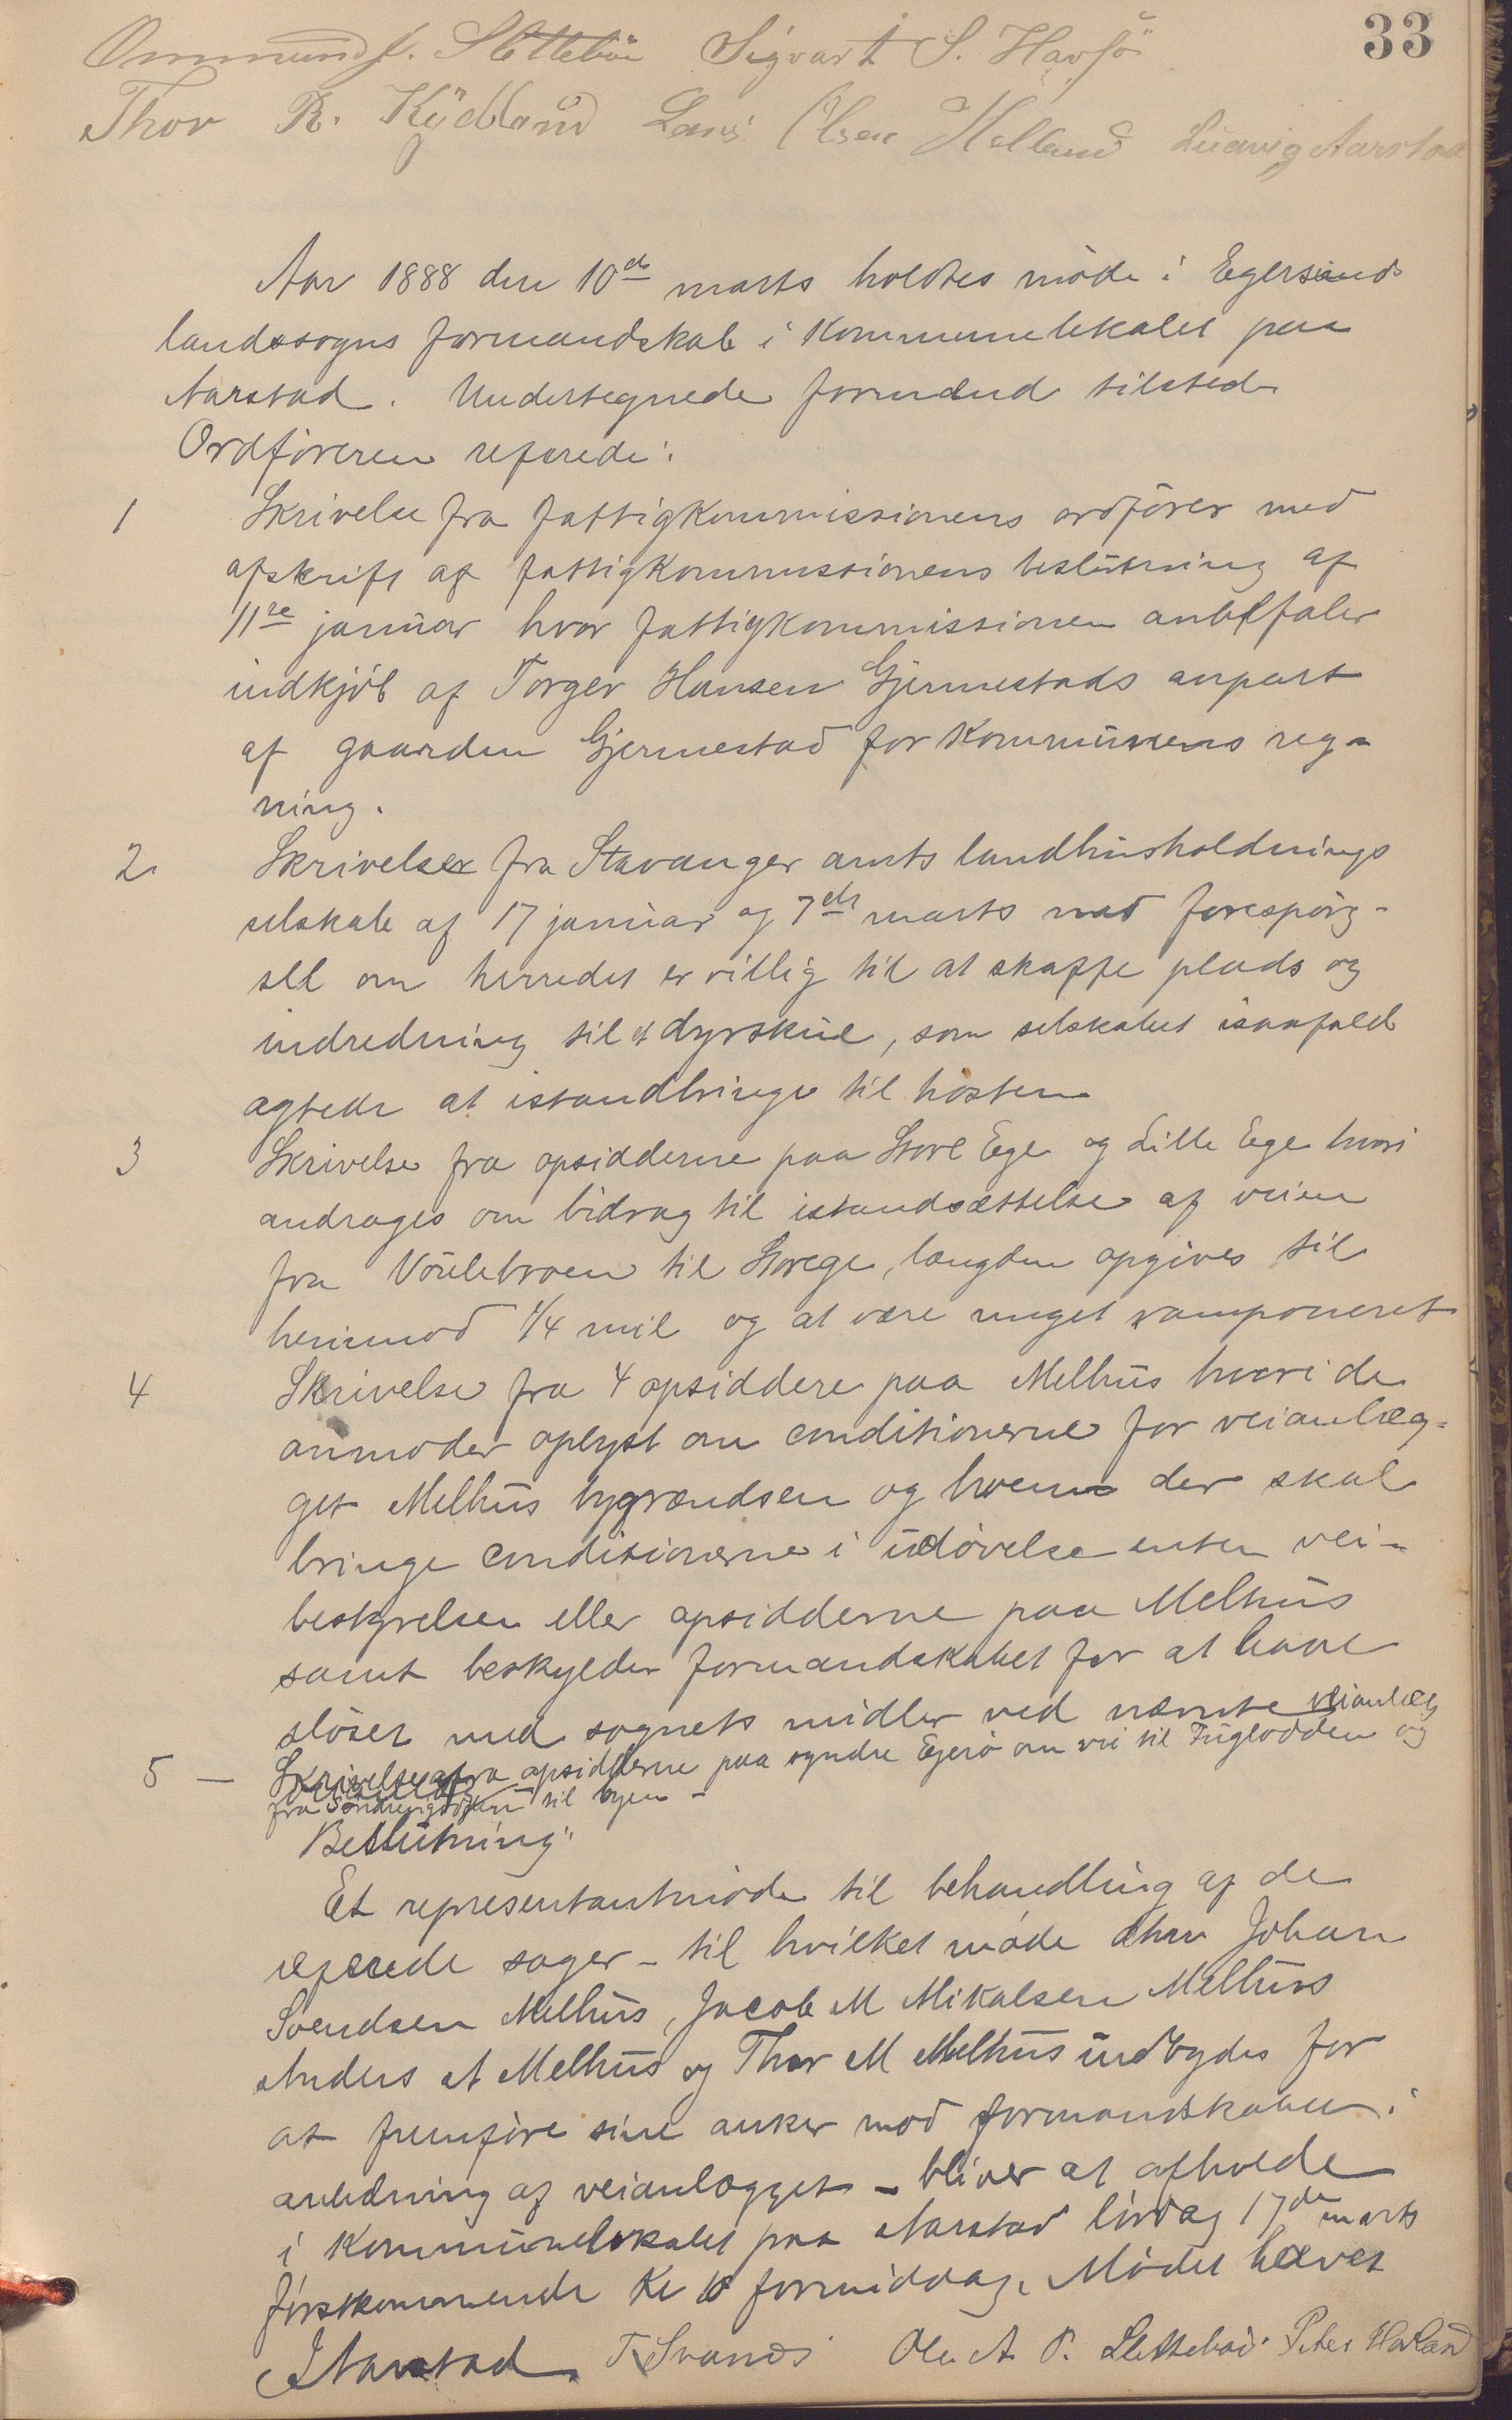 33
Ommund J. Slettebøe Sigvart S. Havsö
Thor R. Kydland Lars Olsen Helland Ludvig Aarstad
Aar 1888 den 10de marts holdtes møde i Egersunds
landssogns formandskab i Kommunelokalet paa
Aarstad. Undertegnede formænd tilstede
Ordføreren referede:
1 Skrivelse fra fattigkommissionens ordfører med
afskrift af fattigkommissionens beslutning af
11te januar hvor fattigkommissionen anbefaler
indkjøb af Torger Hansen Gjermestads anpart
af gaarden Gjermestad for Kommunens reg-
ning.
2 Skrivelser fra Stavanger amts landhusholdnings
selskab af 17 januar og 7de marts med forespørg-
sel om herredet er villig til at skaffe plads og
indredning til et dyrskue, som selskabet isaafald
agtede at istandbringe til høsten
3 Skrivelse fra opsidderne paa Store Ege og Lille Ege hvori
andrages om bidrag til istandsættelse af veien
fra Voulebroen til Storege, længden opgives til
henimod 1/4 mil og at være meget ramponeret
4 Skrivelse fra 4 opsiddere paa Melhus hvori de
anmoder oplyst om conditionerne for veianlæg-
get Melhus bygrændsen og hvem der skal
bringe conditionerne i udøvelse enten vei-
bestyrelsen eller opsidderne paa Melhus
samt beskylder formandskabet for at have
sløset med sognets midler ved nævnte veianlæg
5 — Skrivelse fra opsidderne paa syndre Egerø om vei til Fuglodden og
fra til byen -
Beslutning:
Et representantmøde til behandling af de
referede sager - til hvilket møde dhrr Johan
Svendsen Melhus, Jacob M Mikalsen Melhus
Anders A Melhus og Thor M Melhus indbydes for
at fremføre sine anker mod formandskabet i
anledning af veianlægget - bliver at afholde
i Kommunelokalet paa Aarstad lørdag 17de marts
førstkommende Kl 10 formiddag. Mødet hævet
J Aarstad T Svanes Ole A P. Slettebø Peter Havland